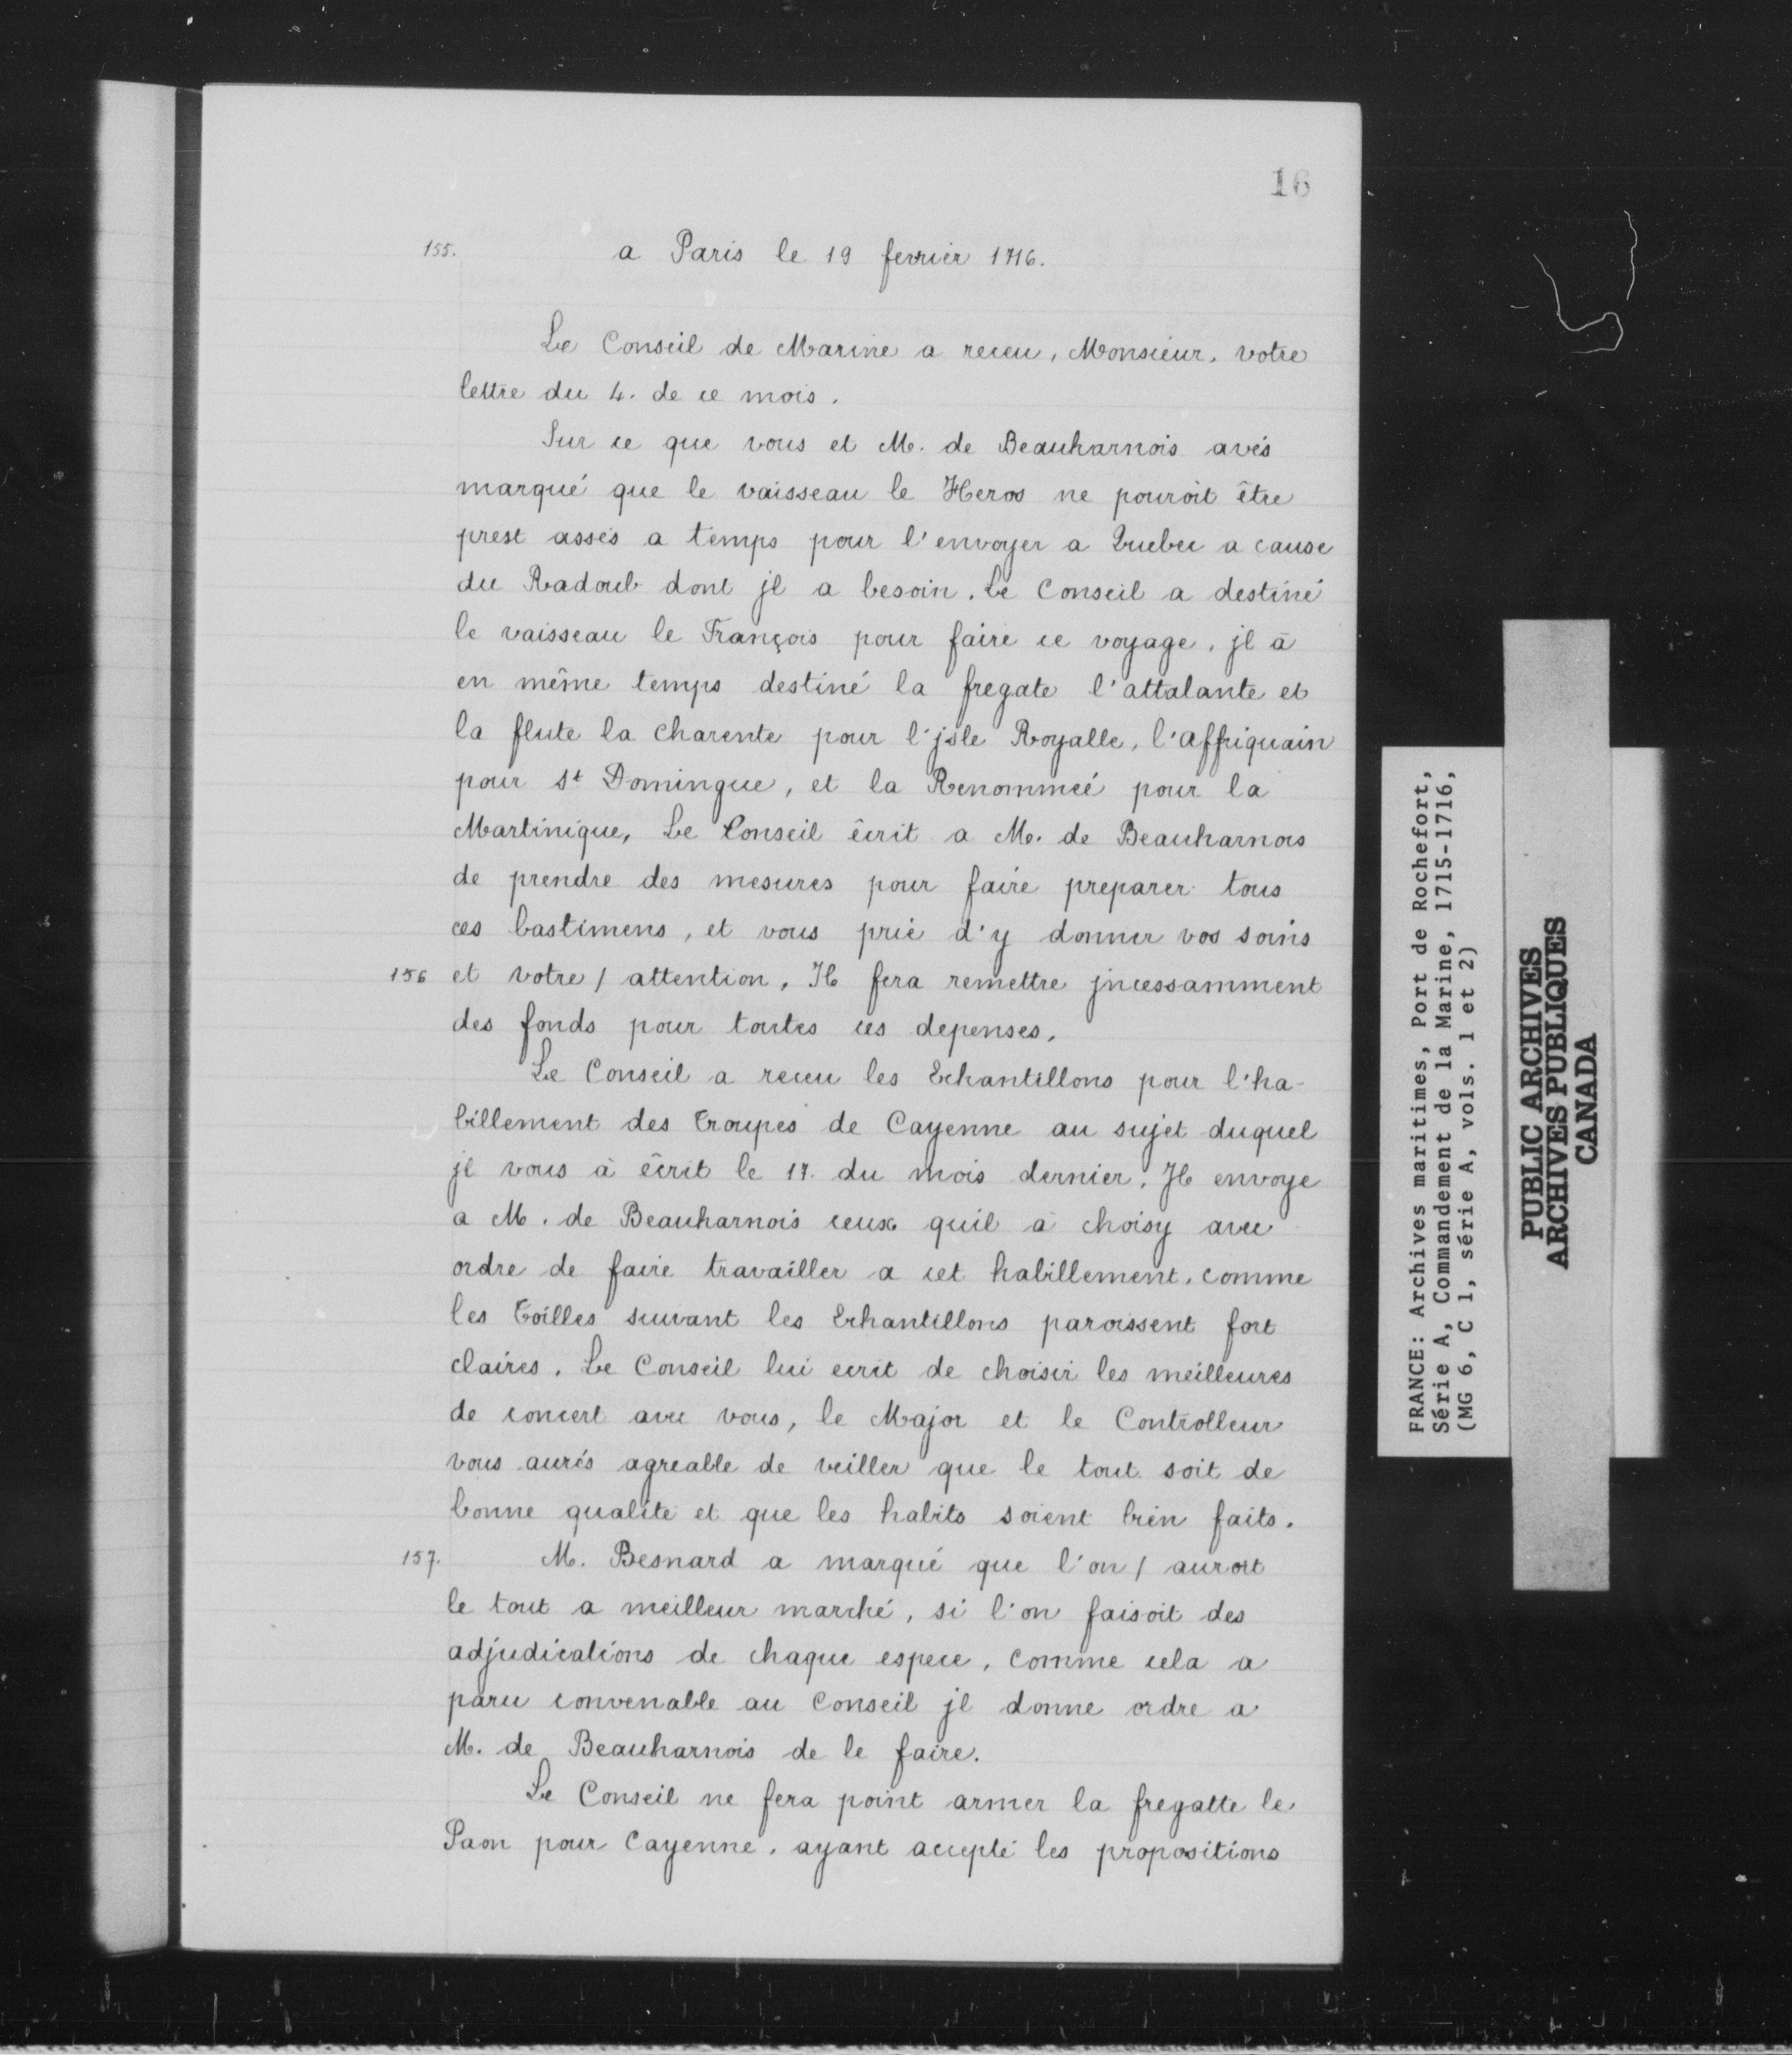 16
155.
a Paris le 19 fevrier 1716.
Le Conseil de Marine a receu, Monsieur, votre
lettre du 4. de ce mois.
Sur ce que vous et M. de Beauharnois avés
marqué que le vaisseau le Heros ne pouroit être
prest assés a temps pour l'envoyer a Quebec a cause
du Radoub dont jl a besoin. Le Conseil a destiné
le vaisseau le François pour faire ce voyage, jl à
en même temps destiné la fregate l'attalante et
la flute la Charente pour l'jsle Royalle, l'affriquain
pour St Domingue, et la Renommeé pour la
Martinique, Le Conseil êcrit a M. de Beauharnois
de prendre des mesures pour faire preparer tous
ces bastimens, et vous prie d'y donner vos soins
156 et votre / attention. Il fera remettre jncessamment
des fonds pour toutes ces depenses.
Le Conseil a receu les Echantillons pour l'ha-
billement des Troupes de Cayenne au sujet duquel
jl vous à êcrit le 17. du mois dernier. Jl envoye
a M. de Beauharnois ceux quil à choisy avec
ordre de faire travailler a cet habillement, comme
les Toilles suivant les Echantillons paroissent fort
claires. Le Conseil lui ecrit de choisir les meilleures
de concert avec vous, le Major et le Controlleur
vous aurés agreable de veiller que le tout soit de
bonne qualité et que les habits soient bien faits.
157. M. Besnard a marqué que l'on / auroit
le tout a meilleur marché, si l'on faisoit des
adjudications de chaque espece, comme cela a
paru convenable au Conseil jl donne ordre a
M. de Beauharnois de le faire.
Le Conseil ne fera point armer la fregatte le
Paon pour Cayenne, ayant accepté les propositions
FRANCE: Archives maritimes, Port de Rochefort,
Série A, Commandement de la Marine, 1715-1716,
(MG 6, C 1, série A, vols. 1 et 2)
PUBLIC ARCHIVES
ARCHIVES PUBLIQUES
CANADA